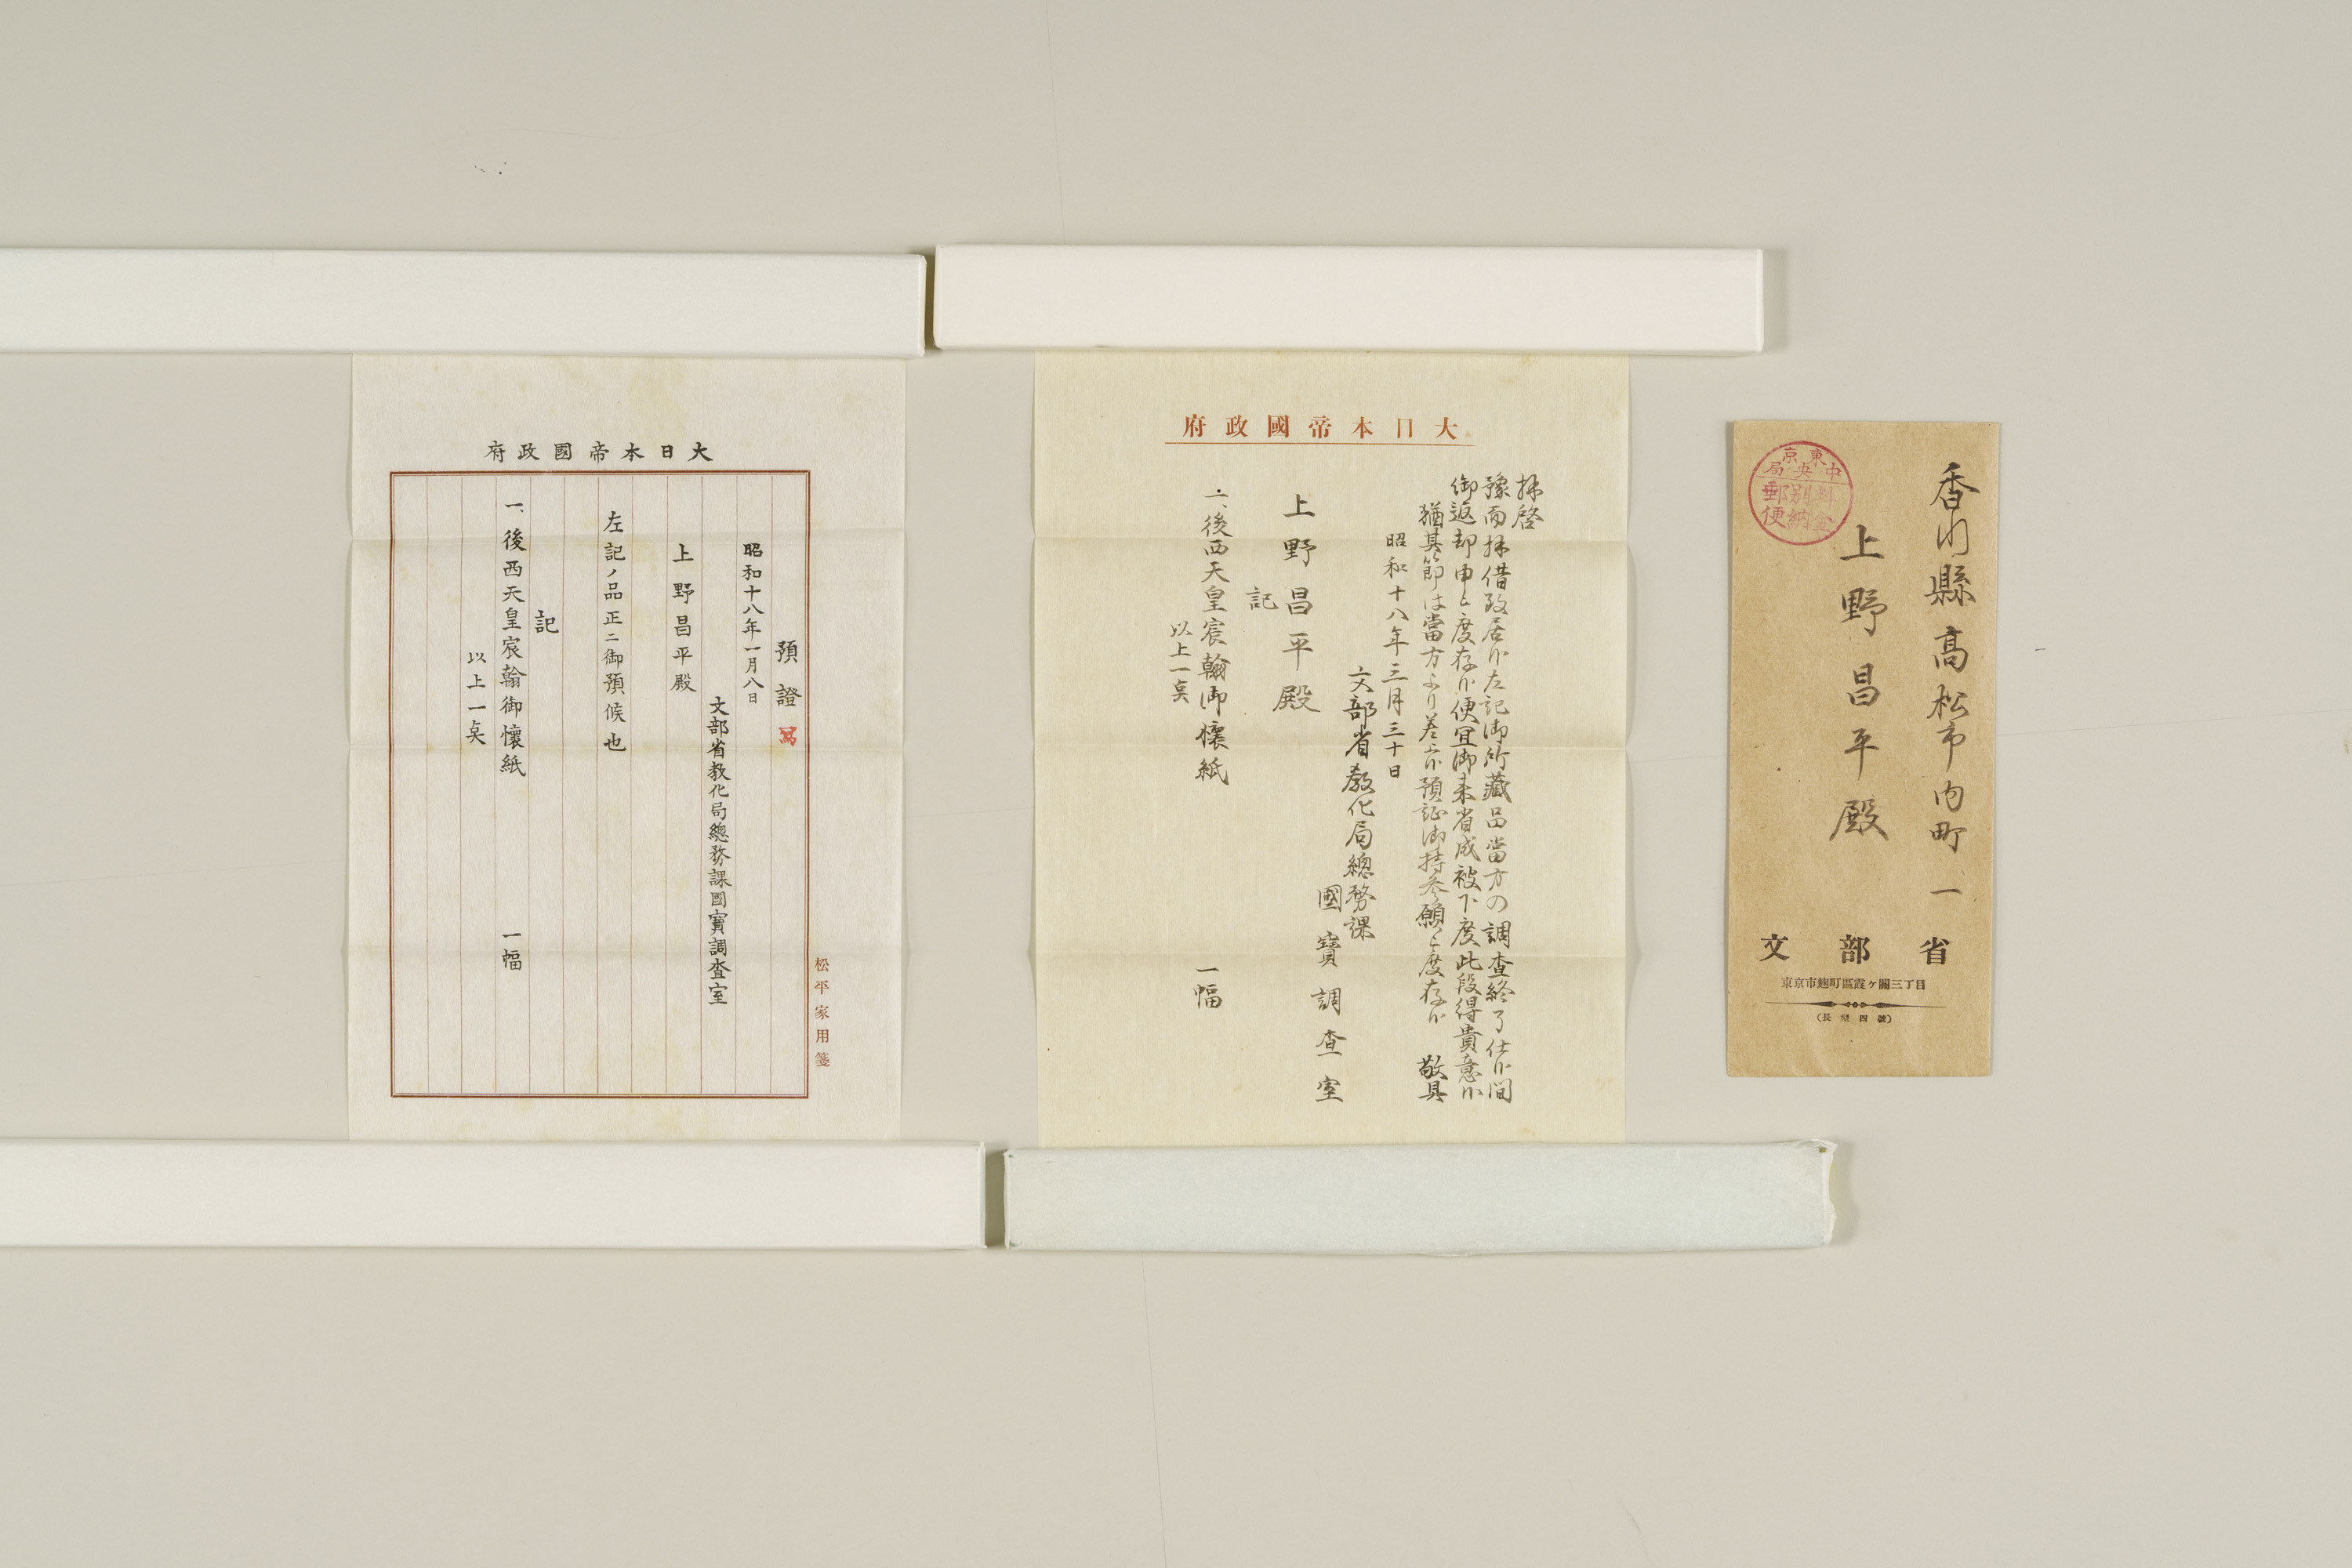 香川縣高松市内町一
上野昌平殿
東京
中央局
料金
別納
郵便
文部省
東京市麹町區霞ヶ關三丁目
(長型四號)
大日本帝國政府
拝啓
豫而拝借致居候左記御所藏品當方の調査終了仕候間
御返却申上度存候便宜御来省成被下度此段得貴意候
猶其節は當方より差上候預証御持参願上度存候 敬具
昭和十八年三月三十日
文部省教化局總務課
國寶調査室
上野昌平殿
記
一、後西天皇宸翰御懐紙 一幅
以上一点
大日本帝國政府
預證 寫
昭和十八年一月八日
文部省教化局總務課國寶調査室
上野昌平殿
左記ノ品正ニ御預候也
記
一、後西天皇宸翰御懐紙 一幅
以上一点
松平家用箋